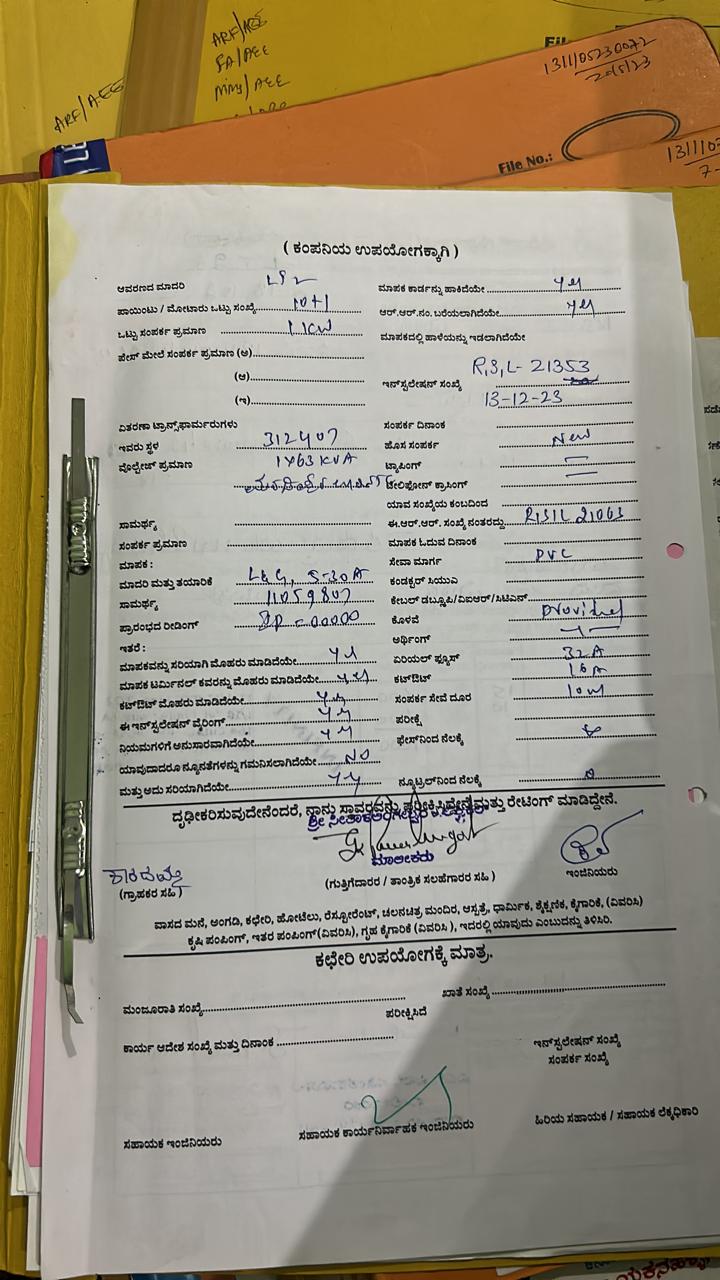 ARF/AEE
ARF/AEE
FA/AEE
MMS/AEE
Fil
1311105230072
20/5/23
File No.:
( ಕಂಪನಿಯ ಉಪಯೋಗಕ್ಕಾಗಿ )
ಆವರಣದ ಮಾದರಿ
ಮಾಪಕ ಕಾರ್ಡನ್ನು ಹಾಕಿದೆಯೇ yes
ಪಾಯಿಂಟು / ಮೋಟಾರು ಒಟ್ಟು ಸಂಖ್ಯೆ 10+1
ಆರ್.ಆರ್.ನಂ. ಬರೆಯಲಾಗಿದೆಯೇ yes
ಒಟ್ಟು ಸಂಪರ್ಕ ಪ್ರಮಾಣ 1 KW
ಮಾಪಕದಲ್ಲಿ ಹಾಳೆಯನ್ನು ಇಡಲಾಗಿದೆಯೇ
ಫೇಸ್ ಮೇಲೆ ಸಂಪರ್ಕ ಪ್ರಮಾಣ (ಅ)
(ಆ)
ಇನ್‌ಸ್ಟಲೇಷನ್ ಸಂಖ್ಯೆ R,S,L- 21353
(ಇ)
13-12-23
ವಿತರಣಾ ಟ್ರಾನ್ಸ್‌ಫಾರ್ಮರುಗಳು
ಸಂಪರ್ಕ ದಿನಾಂಕ
ಇವರು ಸ್ಥಳ 312407
ಹೊಸ ಸಂಪರ್ಕ New
ವೊಲ್ಟೇಜ್ ಪ್ರಮಾಣ 1X63 KVA
ಟ್ಯಾಪಿಂಗ್ —
ಟೆಲಿಫೋನ್ ಕ್ರಾಸಿಂಗ್ —
ಯಾವ ಸಂಖ್ಯೆಯ ಕಂಬದಿಂದ
ಸಾಮರ್ಥ್ಯ
ಈ.ಆರ್.ಆರ್. ಸಂಖ್ಯೆ ನಂತರದ್ದು RSIL 21063
ಸಂಪರ್ಕ ಪ್ರಮಾಣ
ಮಾಪಕ ಓದುವ ದಿನಾಂಕ
ಮಾಪಕ :
ಸೇವಾ ಮಾರ್ಗ PVC
ಮಾದರಿ ಮತ್ತು ತಯಾರಿಕೆ L&G, 5-30A
ಕಂಡಕ್ಟರ್ ಸಿಯುಎ
ಸಾಮರ್ಥ್ಯ 11059807
ಕೇಬಲ್ ಡಬ್ಲ್ಯೂಪಿ/ವಿಐಆರ್/ಸಿಟಿಎಸ್
ಪ್ರಾರಂಭದ ರೀಡಿಂಗ್ = 00000
ಕೊಳವೆ provided
ಇತರೆ :
ಅರ್ಥಿಂಗ್
ಮಾಪಕವನ್ನು ಸರಿಯಾಗಿ ಮೊಹರು ಮಾಡಿದೆಯೇ yes
ಏರಿಯಲ್ ಫ್ಯೂಸ್ 32A
ಮಾಪಕ ಟರ್ಮಿನಲ್ ಕವರನ್ನು ಮೊಹರು ಮಾಡಿದೆಯೇ yes
ಕಟ್‌ಔಟ್ 16A
ಕಟ್‌ಔಟ್ ಮೊಹರು ಮಾಡಿದೆಯೇ yes
ಸಂಪರ್ಕ ಸೇವೆ ದೂರ 10m
ಈ ಇನ್‌ಸ್ಟಲೇಷನ್ ವೈರಿಂಗ್ yes
ಪರೀಕ್ಷೆ
ನಿಯಮಗಳಿಗೆ ಅನುಸಾರವಾಗಿದೆಯೇ yes
ಫೇಸ್‌ನಿಂದ ನೆಲಕ್ಕೆ
ಯಾವುದಾದರೂ ನ್ಯೂನತೆಗಳನ್ನು ಗಮನಿಸಲಾಗಿದೆಯೇ NO
ಮತ್ತು ಅದು ಸರಿಯಾಗಿದೆಯೇ yes
ನ್ಯೂಟ್ರಲ್‌ನಿಂದ ನೆಲಕ್ಕೆ
ದೃಢೀಕರಿಸುವುದೇನೆಂದರೆ, ನಾನು ಸ್ಥಾವರವನ್ನು ಪರೀಕ್ಷಿಸಿದ್ದೇನೆ ಮತ್ತು ರೇಟಿಂಗ್ ಮಾಡಿದ್ದೇನೆ.
ಮಾಲೀಕರು
(ಗ್ರಾಹಕರ ಸಹಿ)
(ಗುತ್ತಿಗೆದಾರರ / ತಾಂತ್ರಿಕ ಸಲಹೆಗಾರರ ಸಹಿ)
ಇಂಜಿನಿಯರು
ವಾಸದ ಮನೆ, ಅಂಗಡಿ, ಕಛೇರಿ, ಹೋಟೆಲು, ರೆಸ್ಟೋರೆಂಟ್, ಚಲನಚಿತ್ರ ಮಂದಿರ, ಆಸ್ಪತ್ರೆ, ಧಾರ್ಮಿಕ, ಶೈಕ್ಷಣಿಕ, ಕೈಗಾರಿಕೆ, (ವಿವರಿಸಿ)
ಕೃಷಿ ಪಂಪಿಂಗ್, ಇತರ ಪಂಪಿಂಗ್(ವಿವರಿಸಿ), ಗೃಹ ಕೈಗಾರಿಕೆ (ವಿವರಿಸಿ ), ಇದರಲ್ಲಿ ಯಾವುದು ಎಂಬುದನ್ನು ತಿಳಿಸಿರಿ.
ಕಛೇರಿ ಉಪಯೋಗಕ್ಕೆ ಮಾತ್ರ.
ಮಂಜೂರಾತಿ ಸಂಖ್ಯೆ
ಖಾತೆ ಸಂಖ್ಯೆ
ಪರೀಕ್ಷಿಸಿದೆ
ಕಾರ್ಯ ಆದೇಶ ಸಂಖ್ಯೆ ಮತ್ತು ದಿನಾಂಕ
ಇನ್‌ಸ್ಟಲೇಷನ್ ಸಂಖ್ಯೆ
ಸಂಪರ್ಕ ಸಂಖ್ಯೆ
ಸಹಾಯಕ ಇಂಜಿನಿಯರು
ಸಹಾಯಕ ಕಾರ್ಯನಿರ್ವಾಹಕ ಇಂಜಿನಿಯರು
ಹಿರಿಯ ಸಹಾಯಕ / ಸಹಾಯಕ ಲೆಕ್ಕಧಿಕಾರಿ